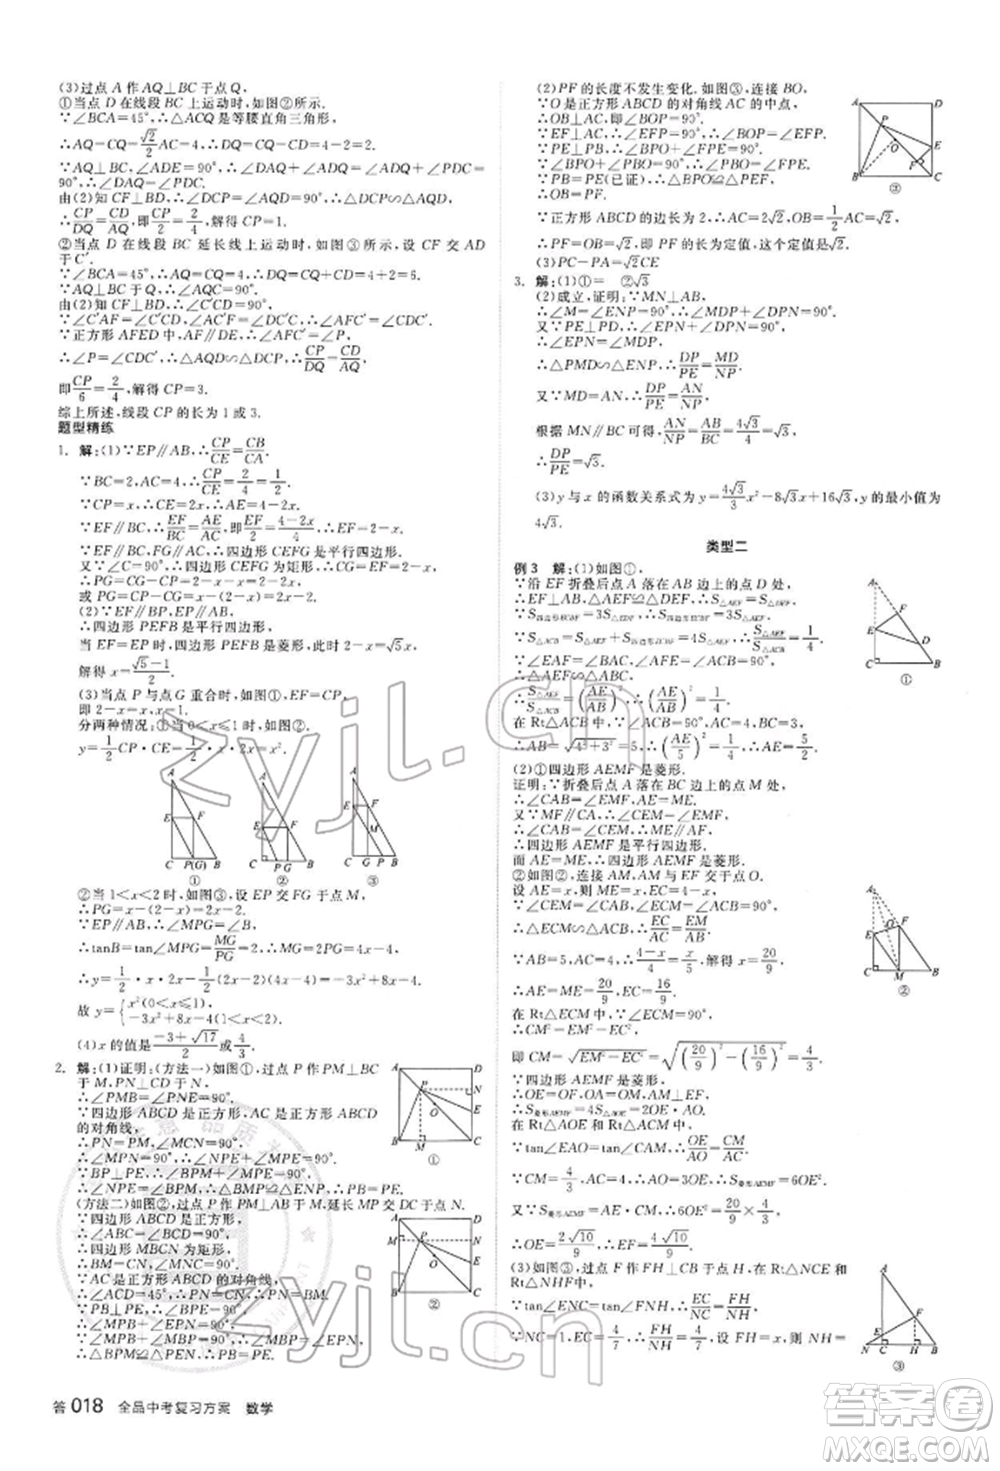 (3)过点 A 作 AQ⊥BC 于点 Q,
①当点 D 在线段 BC 上运动时,如图②所示.
∵∠BCA=45°,∴△ACQ 是等腰直角三角形,
∴AQ=CQ=√2/2 AC=4,∴DQ=4-2=2.
∵AQ⊥BC,∠ADE=90°,∴∠DAQ+∠ADQ=∠ADQ+∠PDC=
90°,∴∠DAQ=∠PDC.
由(2)知 CF⊥BD,∴∠DCP=∠AQD=90°,∴△DCP∽△AQD,
∴CP/DQ=CD/AQ,即 CP/2=2/4,解得 CP=1.
②当点 D 在线段 BC 延长线上运动时,如图③所示,设 CF 交 AD
于点C′.
∵∠BCA=45°,∴AQ=CQ=4,∴DQ=CQ+CD=4+2=6.
由(2)知 CF⊥BD,∴∠C′CD=90°,∴∠CDC′+∠CC′D=90°.
∵∠C′AF=∠C′CD=90°,∠AC′F=∠CC′D,∴∠AFC′=∠CDC′.
∵正方形 AFED 中,∠AFE=∠FED=90°,
∴∠P=∠CDC′,∴△AQD∽△DCP,∴CP/DQ=CD/AQ,
即 CP/6=2/4,解得 CP=3.
综上所述,线段 CP 的长为 1 或 3.
题型精练
1. 解:(1)∵EP∥AB,∴CP/CE=CB/CA.
∵BC=2,AC=4,∴CP/CE=2/4=1/2.
∵CP=x,∴CE=2x,∴AE=4-2x.
∵EF∥BC,∴EF/BC=AE/AC,即EF/2=(4-2x)/4,∴EF=2-x.
∵EF∥BC,FG∥AC,∴四边形 CEFG 是平行四边形.
又∵∠C=90°,∴四边形 CEFG 为矩形,∴CG=EF=2-x,
或 PG=CG-CP=2-2x.
(2)∵EF∥BC,EP∥AB,
∴四边形 PEFB 为平行四边形,
当 EF=EP 时,四边形 PEFB 是菱形,此时 2-x=√5x,
解得 x=(√5-1)/2.
(3)当点 P 与点 G 重合时(如图①),x=EF,
即 2-x=x,∴x=1.
分两种情况:①当 0<x≤1 时(如图②),
y=1/2CP·CE=1/2x·2x=x².
A
E F
C P(G) B
①
A
E F
C P G B
②
A
E F
M
C G P B
③
②当 1<x<2 时,如图③,设 EP 交 FG 于点 M,
∴PG=CP-CG=x-(2-x)=2x-2.
∵AB∥EP,∴∠MPG=∠B,
∴tanB=tan∠MPG=MG/PG=2,∴MG=2PG=4x-4,
∴y=1/2·x·2x-1/2(2x-2)(4x-4)=-3x²+8x-4.
故 y={x²(0<x≤1),
-3x²+8x-4(1<x<2).
(4)x 的值是(-3+√17)/2或4/3.
2. 解:(1)证明:(方法一)如图①,过点 P 作
PM⊥BC 于 M,PN⊥CD 于 N,
∴∠PMB=∠PNE=90°.
∵四边形 ABCD 是正方形,AC 是正方形
的对角线,
∴PN=PM,∠MCN=90°,
∴∠MPN=90°.
∵BP⊥PE,∴∠BPE=90°,
∴∠NPE=∠MPB,
∴△NPE≌△MPB,∴PB=PE.
A D
P N
O E
B M C
①
(方法二)如图②,过点 P 作 PM⊥AB 于 M,延长 MP 交 CD 于点 N.
∵四边形 ABCD 是正方形,
∴四边形 MBCN 为矩形,
∴BM=CN,∠PNE=90°.
∵AC是正方形ABCD的对角线,
∴∠ACD=45°,∴NP=NC=BM.
∵∠MBP+∠MPB=∠NPE+∠MPB=90°,
∴∠MBP=∠NPE.
∵∠BMP=∠PNE=90°,
∴△BMP≌△PNE,∴PB=PE.
A D
M P N
O E
B C
②
(2)PF 的长度不发生变化. 如图③,连接 BO,
∵O 是正方形 ABCD 的对角线 AC 的中点,
∴OB⊥AC,即∠BOP=90°.
∵PE⊥PB,∴∠BPE=90°.
∵∠BPO+∠FPE=∠BPO+∠PBO=90°,
∴∠PBO=∠FPE.
∵PB=PE(已证),∴△BPO≌△PEF,
∴OB=PF.
A D
P
O E
F
B C
③
∵正方形 ABCD 的边长为 2,∴AC=2√2,∴OB=1/2AC=√2,
∴PF=OB=√2,即 PF 的长为定值,这个定值为√2.
(3)PC-PA=√2CE.
3. 解:(1)①= ②√3
(2)成立,证明:∵MN⊥AB,
∴∠M=∠ENP=90°,∴∠MDP+∠DPM=90°.
又∵PE⊥PD,∴∠EPN+∠DPM=90°,
∴∠EPN=∠MDP,
∴△PMD∽△ENP,∴DP/PE=MD/NP.
又∵MD=AN,∴DP/PE=AN/NP.
根据 MN∥BC 可得 AN/NP=AB/BC=4√3/4=√3,
∴DP/PE=√3.
(3)y 与 x 的函数关系式为 y=4√3/3x²-8√3x+16√3,y 的最小值为
4√3.
类型二
例 3 解:(1)如图①,
∵沿 EF 折叠后点 A 落在 AB 边上的点 D 处,
∴EF⊥AB,△AEF≌△DEF,∴S△AEF=S△DEF.
∵S四边形ECBF=3S△EDF,∴S四边形ECBF=3S△AEF.
∵S△ACB=S△AEF+S四边形ECBF,∴S△AEF/S△ACB=1/4.
∵∠EAF=∠BAC,∠AFE=∠ACB=90°,
∴△AEF∽△ABC,
∴S△AEF/S△ACB=(AE/AB)²,∴(AE/AB)²=1/4.
在 Rt△ACB 中,∵∠ACB=90°,AC=4,BC=3,
∴AB=√(4²+3²)=5,∴(AE/5)²=1/4,∴AE=5/2.
A
F
E
D
C B
①
(2)①四边形 AEMF 是菱形.
证明:∵折叠后点 A 落在 BC 边上的点 M 处,
∴∠CAB=∠EMF,AE=ME.
又∵MF∥CA,∴∠CEM=∠EMF,
∴∠CAB=∠CEM,∴EM∥AF,
∴四边形 AEMF 是平行四边形.
而 AE=EM,∴四边形 AEMF 是菱形.
②如图②,连接 AM,AM 与 EF 交于点 O,
设 AE=x,则 EM=x,CE=4-x.
∵∠CEM=∠CAB,∠ECM=∠ACB=90°,
∴△ECM∽△ACB,∴EC/AC=EM/AB.
∵AB=5,AC=4,∴(4-x)/4=x/5,解得 x=20/9,
∴AE=ME=20/9,EC=16/9.
在 Rt△ECM 中,∵∠ECM=90°,
∴CM²=EM²-EC²,
即 CM=√(EM²-EC²)=√((20/9)²-(16/9)²)=4/3.
A
O F
E
C M B
②
∵四边形 AEMF 是菱形,
∴OE=OF,OA=OM,AM⊥EF,
∴S菱形AEMF=4S△AOE=2OE·AO.
在 Rt△AOE 和 Rt△ACM 中,
∵tan∠EAO=tan∠CAM,∴OE/AO=CM/AC.
∵CM=4/3,AC=4,∴AO=3OE,∴S菱形AEMF=6OE².
又∵S菱形AEMF=AE·CM,∴6OE²=20/9×4/3,
∴OE=2√10/9,∴EF=4√10/9.
(3)如图③,过点 F 作 FH⊥CB 于点 H,在 Rt△NCE 和
Rt△NHF 中,
∵tan∠ENC=tan∠FNH,∴EC/NC=FH/NH.
∵NC=1,EC=4/7,∴FH/NH=4/7,设 FH=x,则 NH=
A
F
E
N C H B
③
答 018 全品中考复习方案 数学
zyjl.cn
zyjl.cn
MXQE.COM